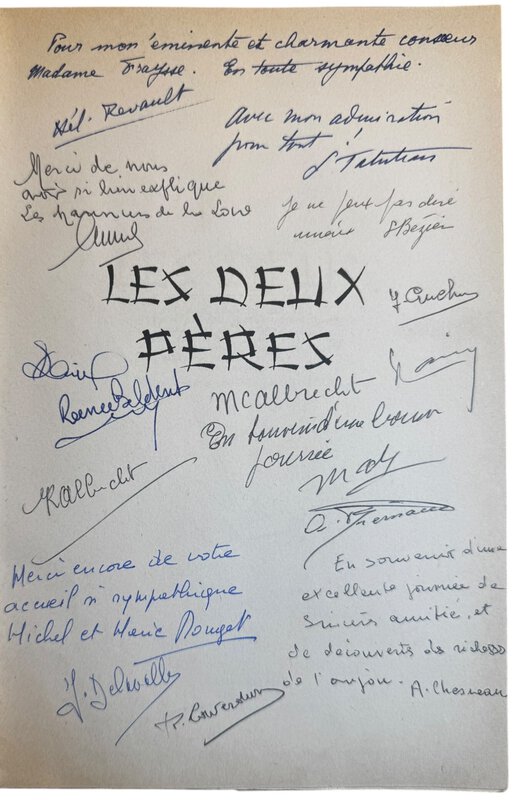 Pour mon éminente et charmante consœur
Madame Fraysse. En toute sympathie.
Hél. Revault
Avec mon admiration
pour tout !
Merci de nous
avoir si bien expliqué
Les hanneurs de la Loire
Je ne peux pas dire
mieux SBézier
LES DEUX
PÈRES
Renée Baldent
MCAlbrecht
En souvenir d'une bonne
journée
Mady
MAlbrecht
Merci encore de votre
accueil si sympathique
Michel et Marie Rouget
En souvenir d'une
excellente journée de
sincère amitié, et
de découverte des richesses
de l'anjou. A. Chesneau
J. Delavelle